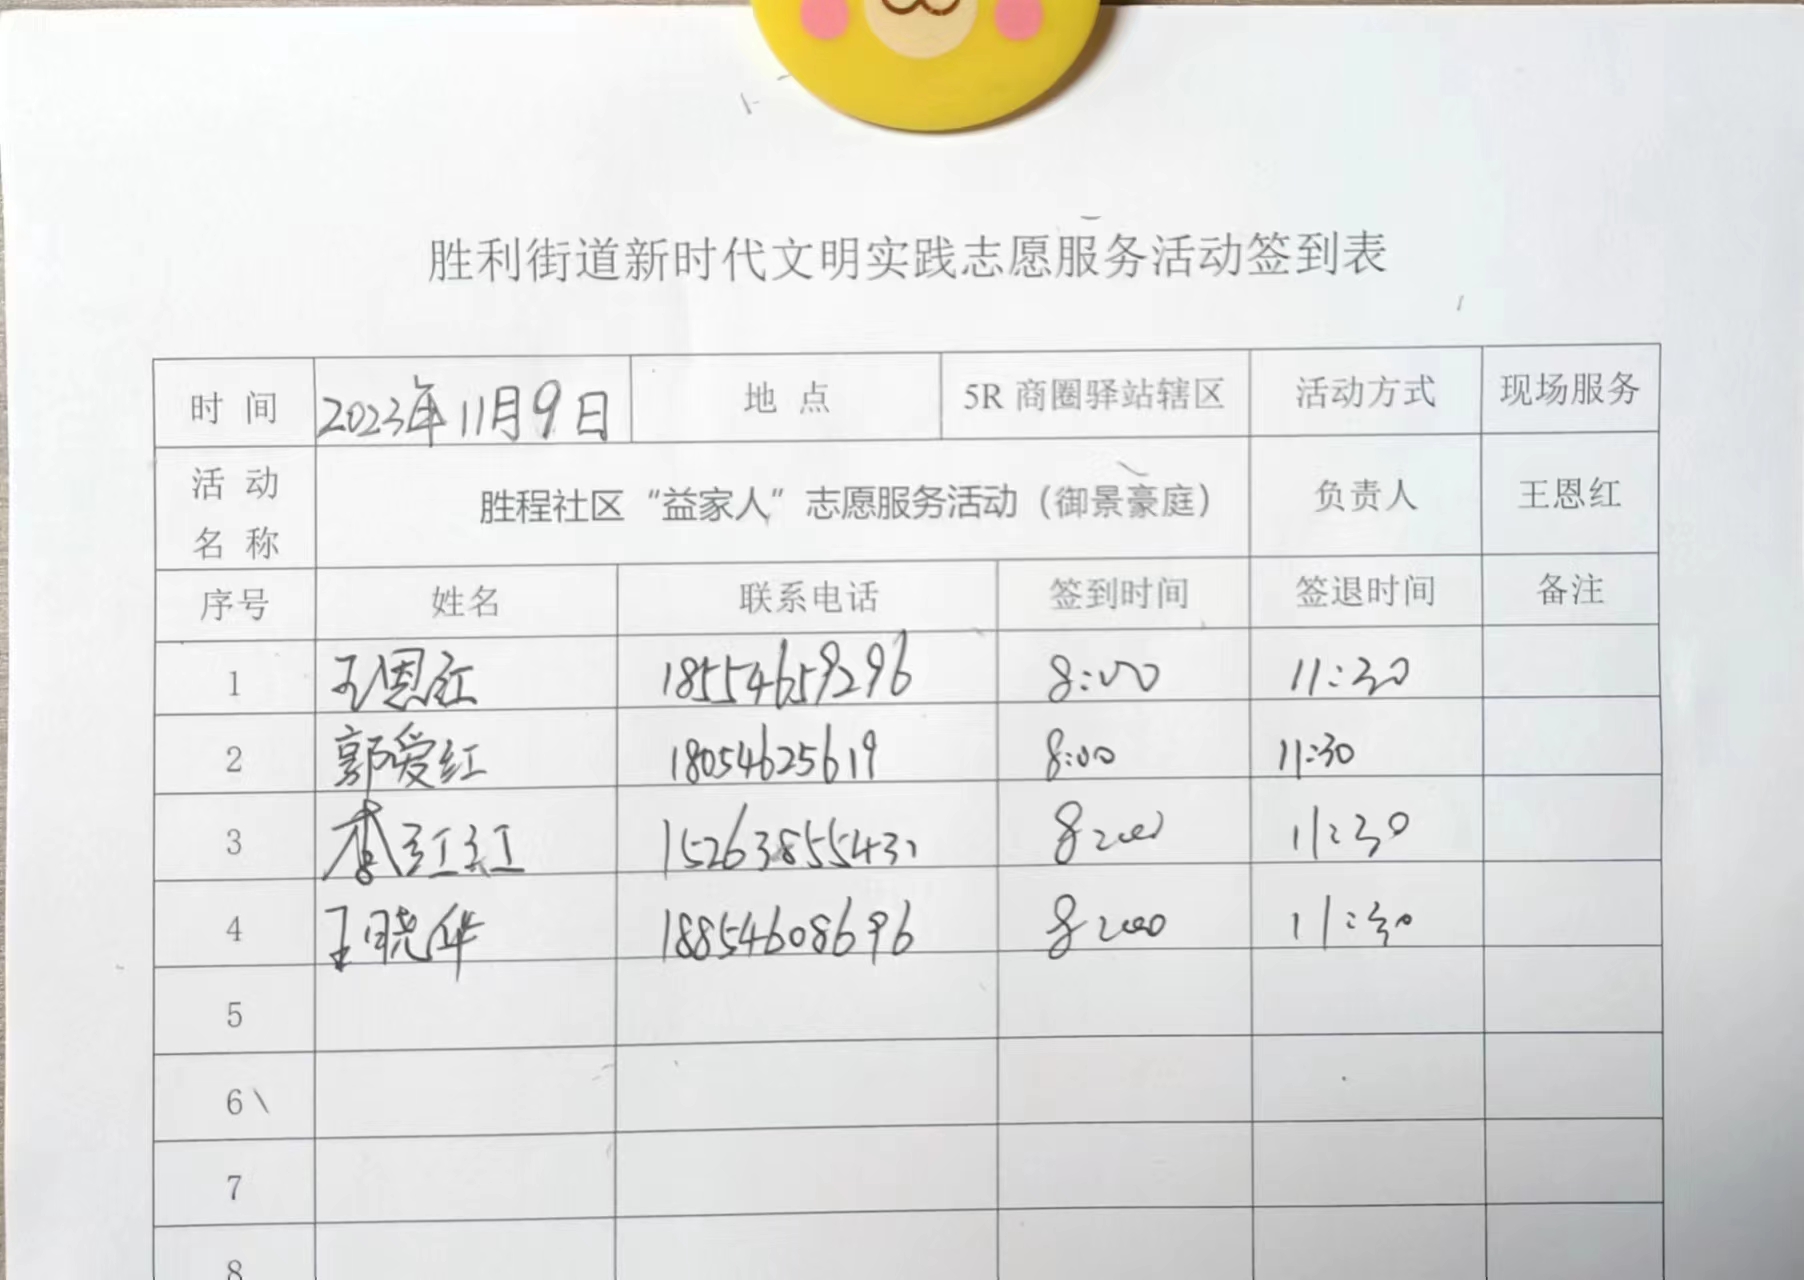 胜利街道新时代文明实践志愿服务活动签到表
时 间 2023年11月9日 地 点 5R 商圈驿站辖区 活动方式 现场服务
活 动 名 称 胜程社区“益家人”志愿服务活动（御景豪庭） 负责人 王恩红
序号 姓名 联系电话 签到时间 签退时间 备注
1 王恩红 18554659296 8:00 11:30
2 郭爱红 18054625619 8:00 11:30
3 李红红 8:00 11:30
4 王晓华 18854608696 8:00 11:30
5
6
7
8